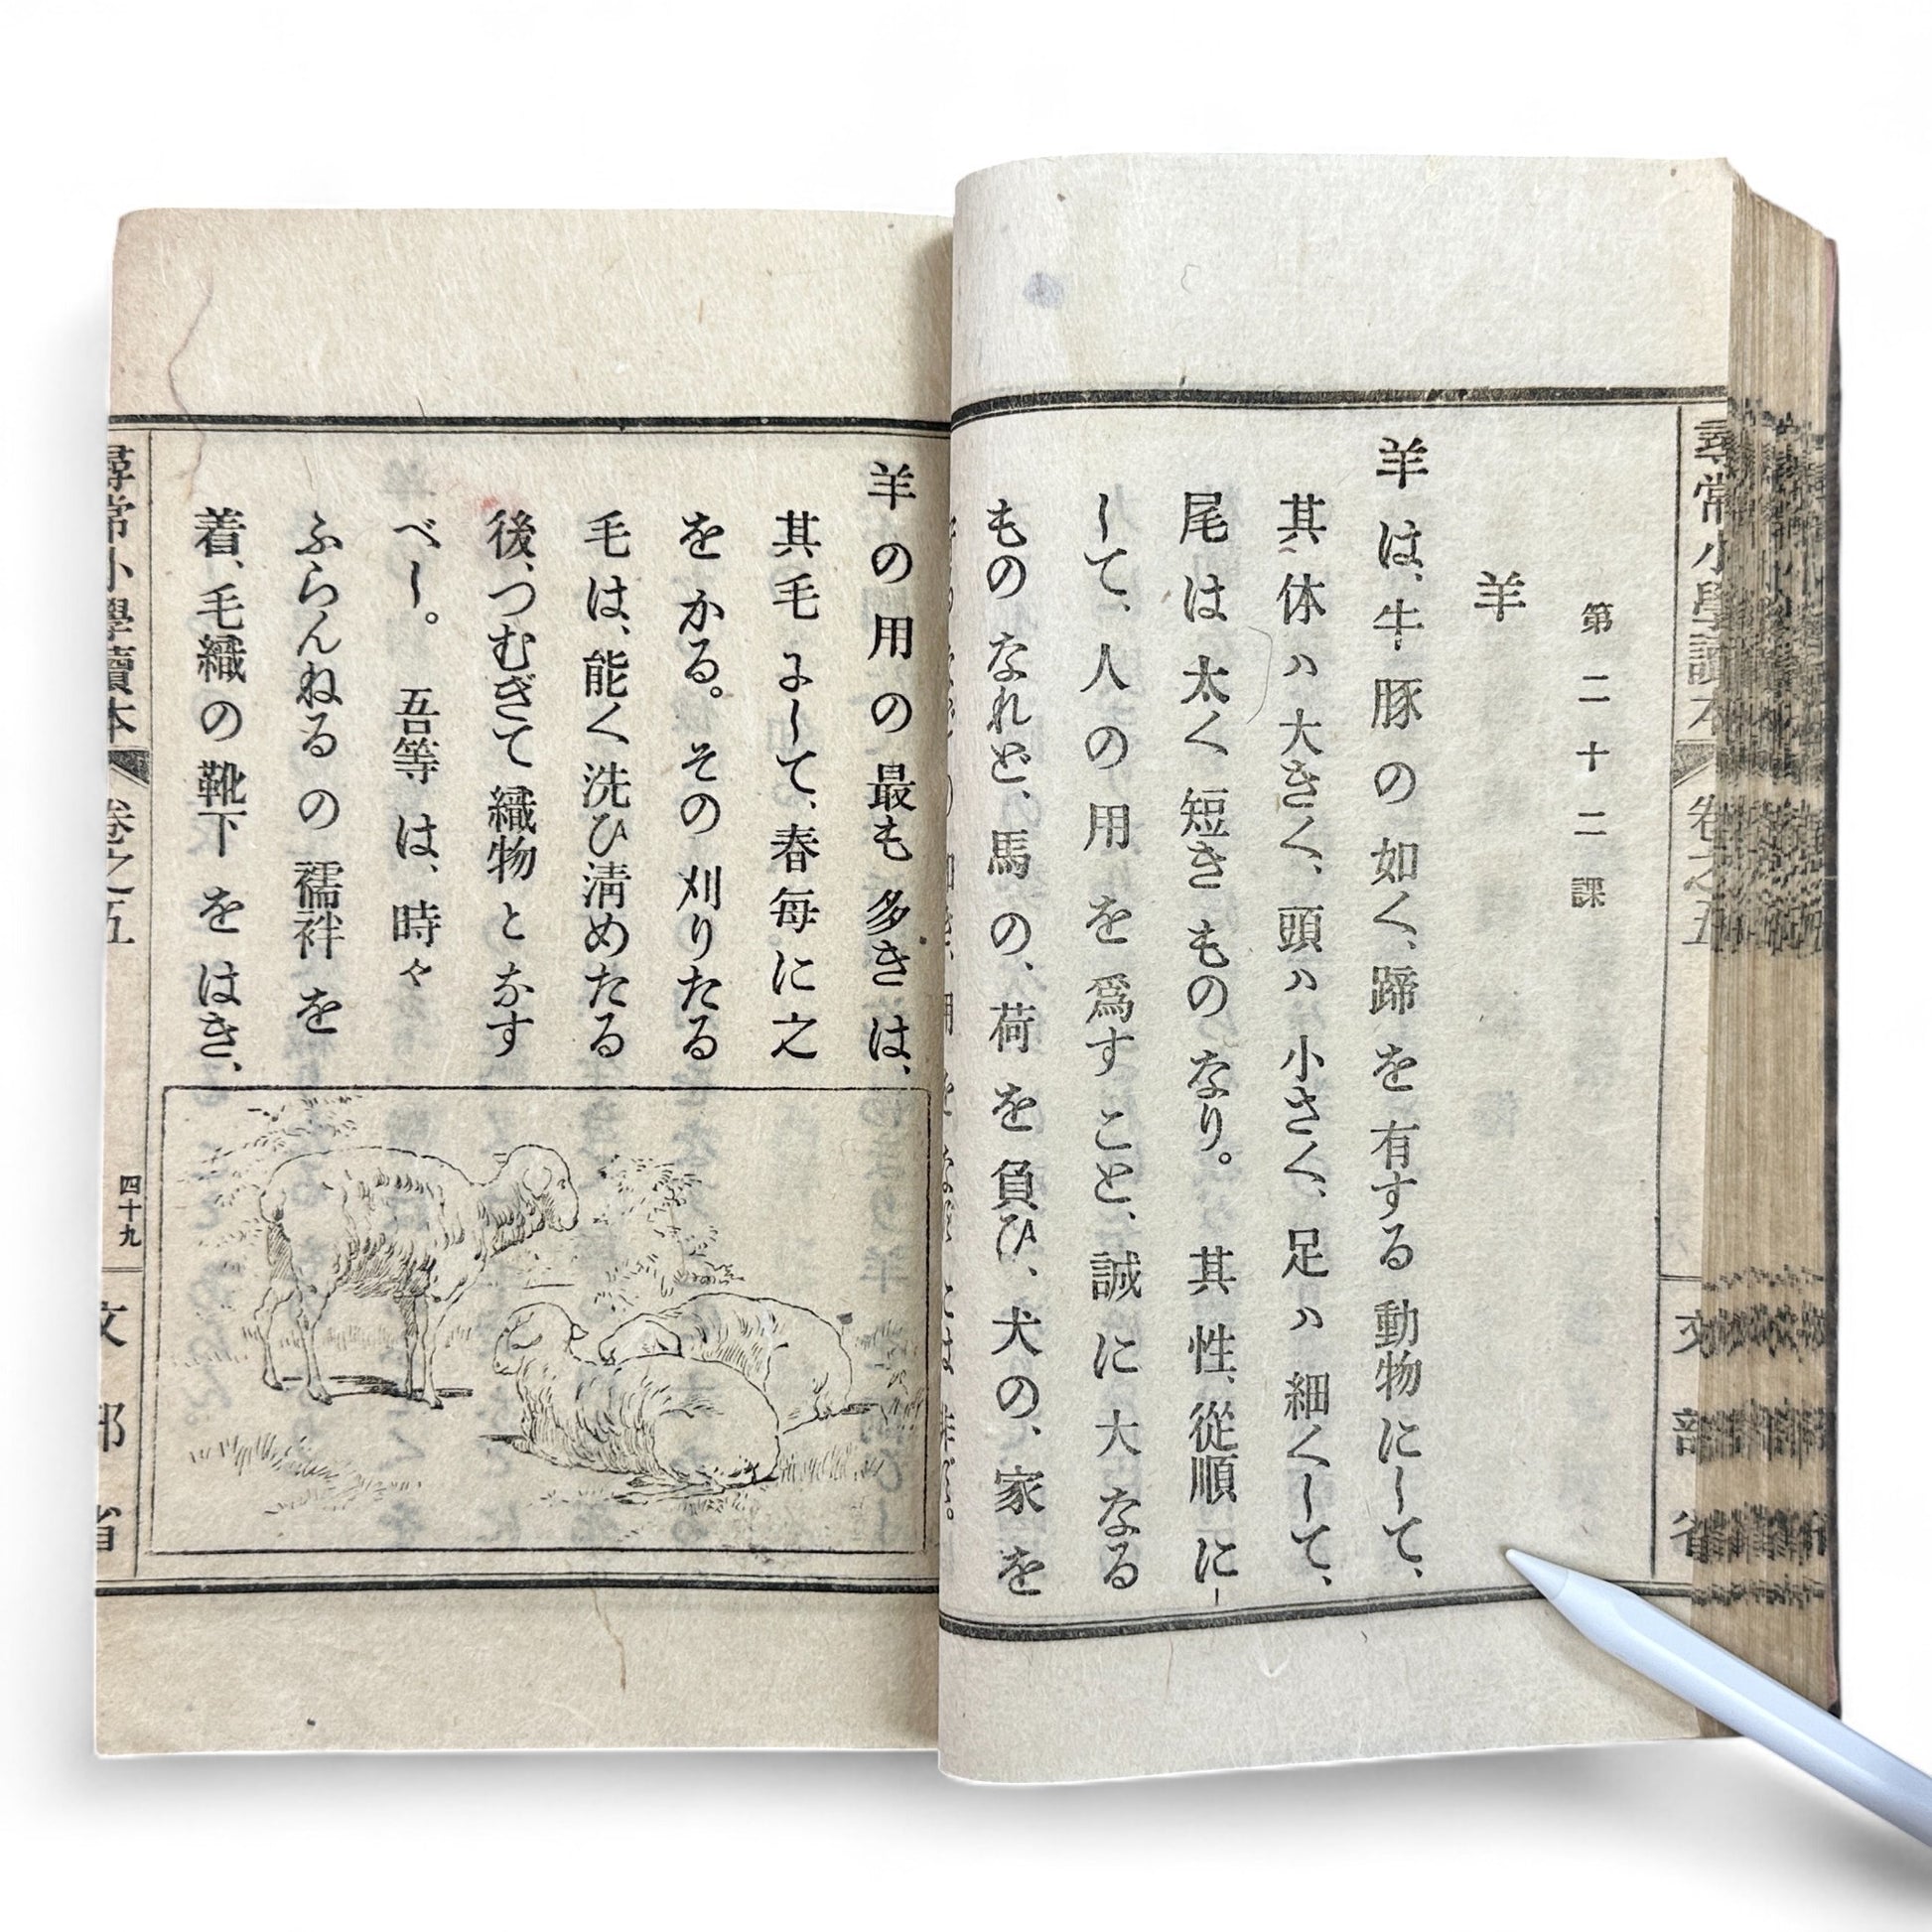 尋常小學讀本
卷之五
文部省
第二十二課
羊
羊は、牛豚の如く、蹄を有する動物にして、
其体ハ大きく、頭ハ小さく、足ハ細くして、
尾は太く短きものなり。其性、從順に
して、人の用を爲すこと、誠に大なる
ものなれど、馬の、荷を負ひ、犬の、家を
羊の用の最も多きは、
其毛よして、春毎に之
をかる。その刈りたる
毛は、能く洗ひ淸めたる
後、つむぎて織物となす
べし。吾等は、時々
ふらんねるの襦袢を
着、毛織の靴下をはき、
尋常小學讀本
卷之五
四十九
文部省